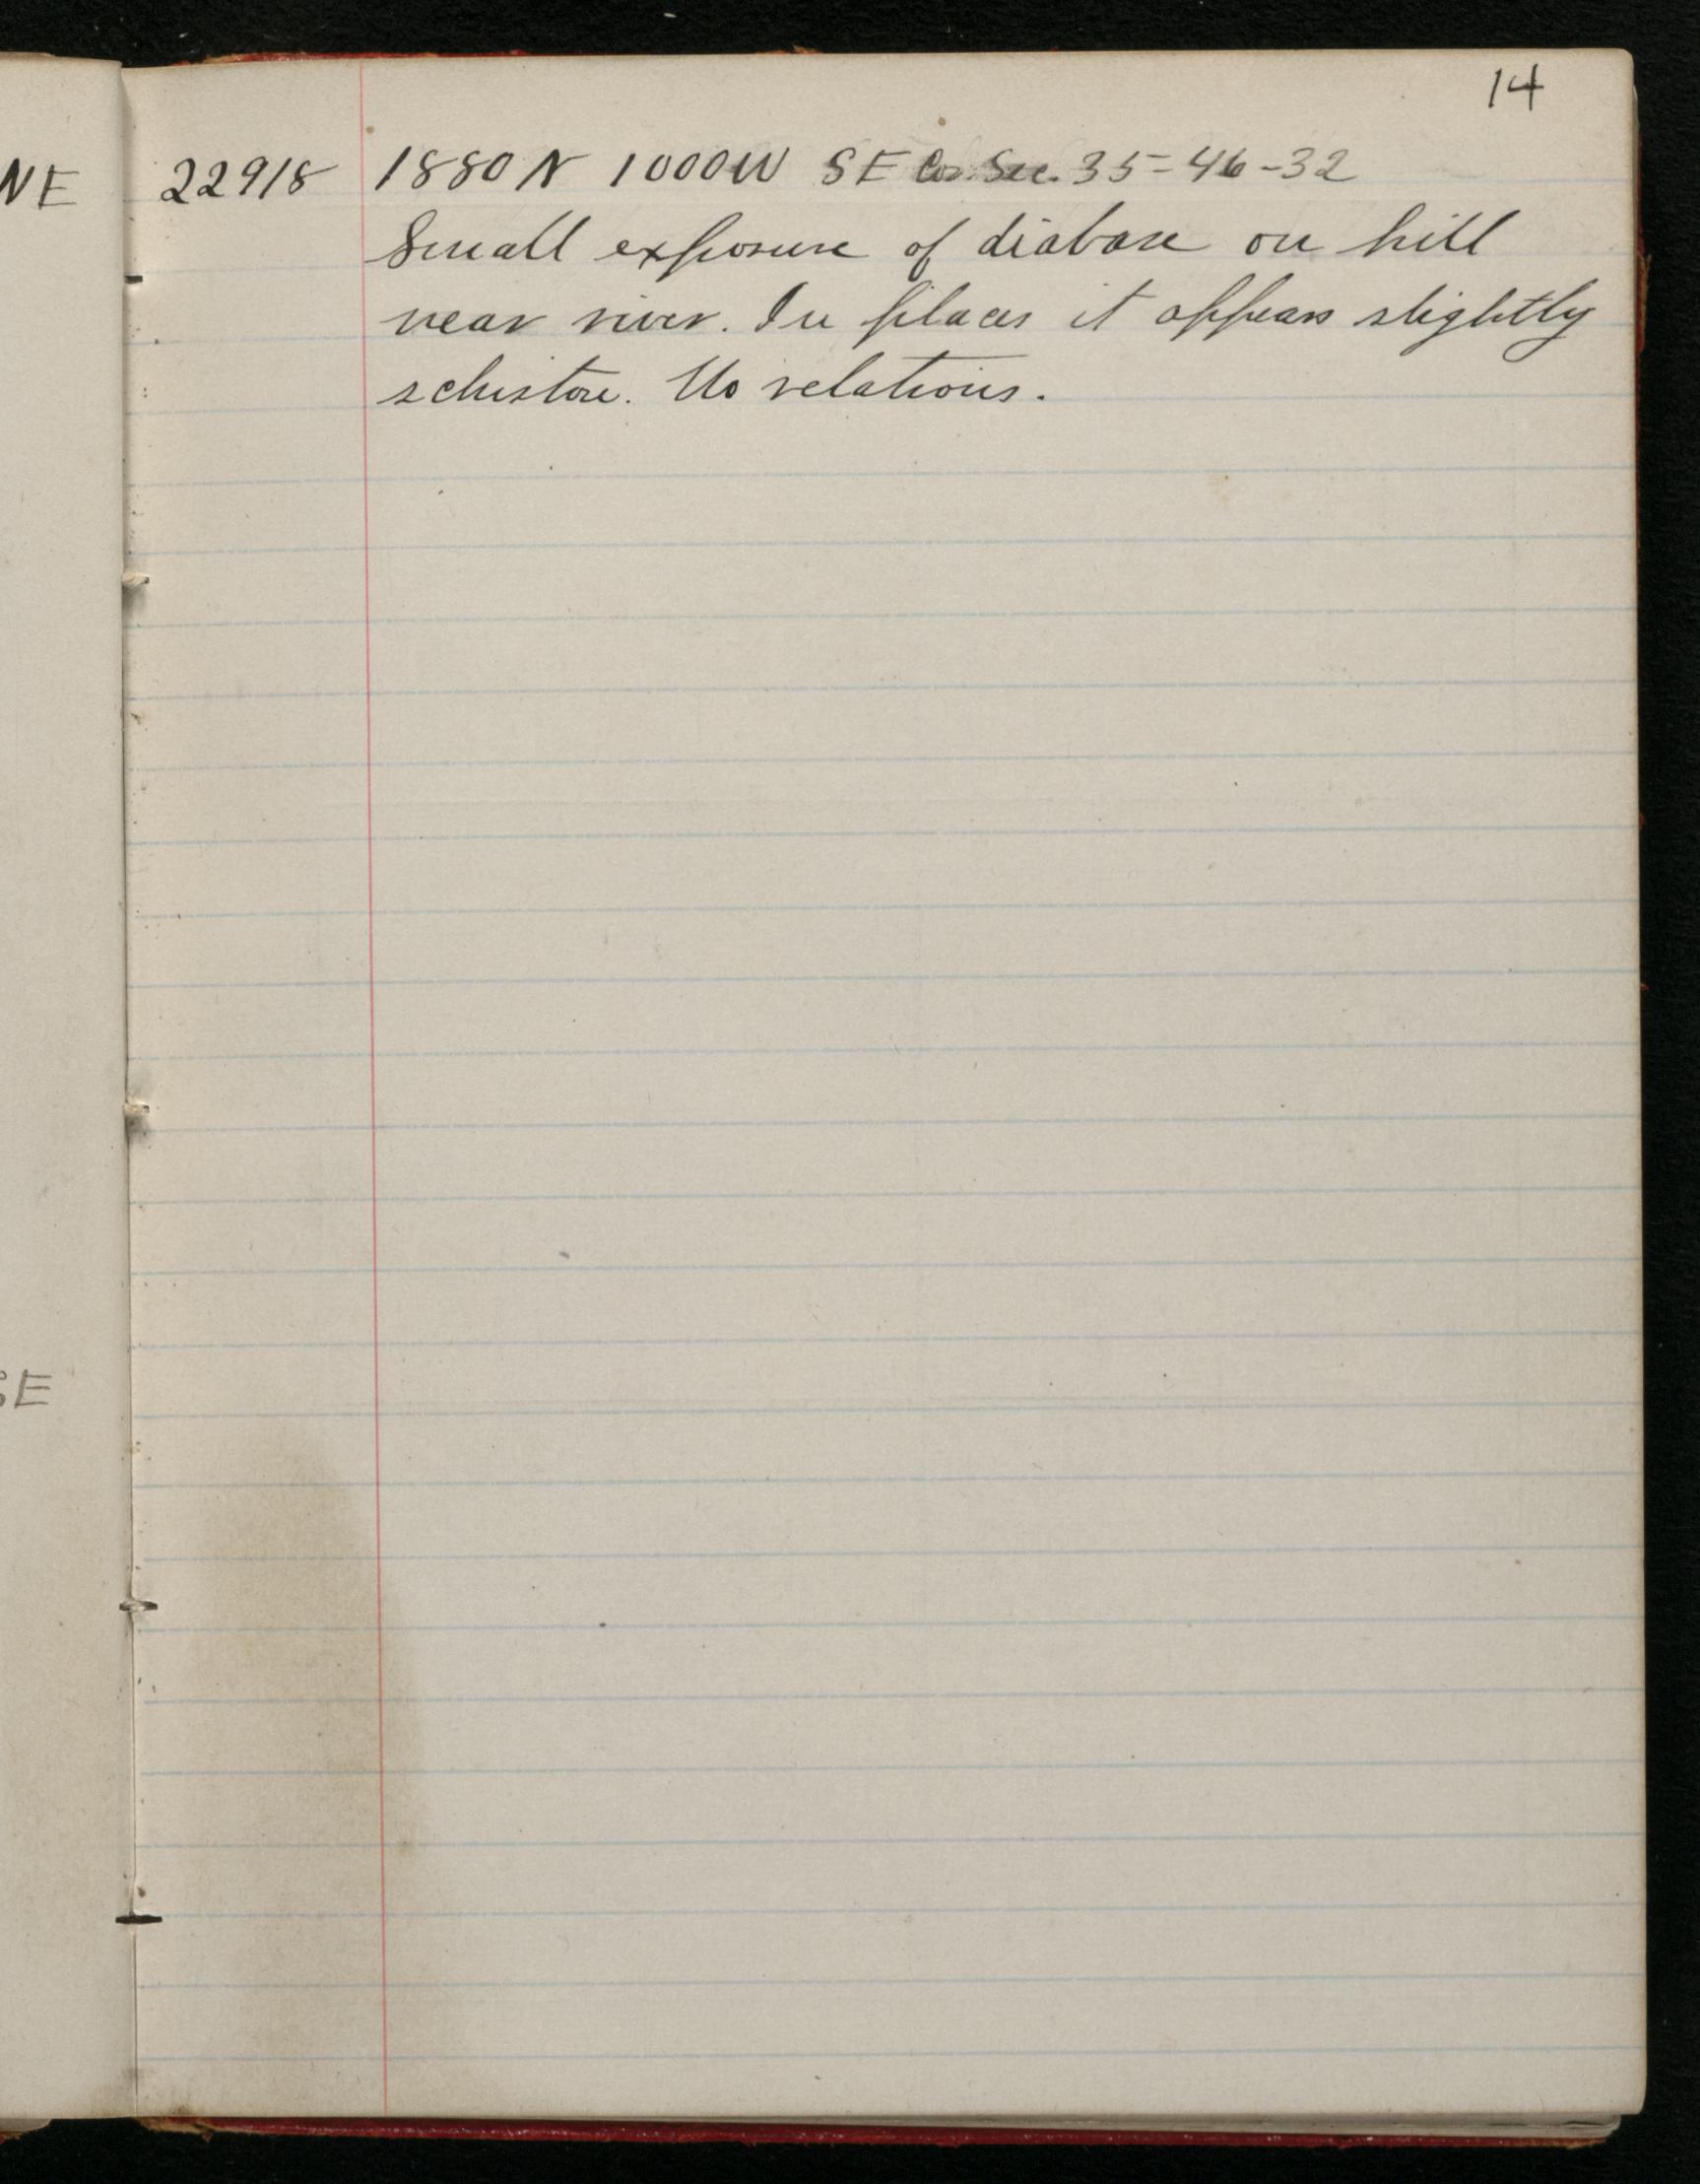 14
NE 22918 1880 N 1000 W SE Cor. Sec. 35-46-32
Small exposure of diabase on hill
near river. In places it appears slightly
schistose. No relations.
SE